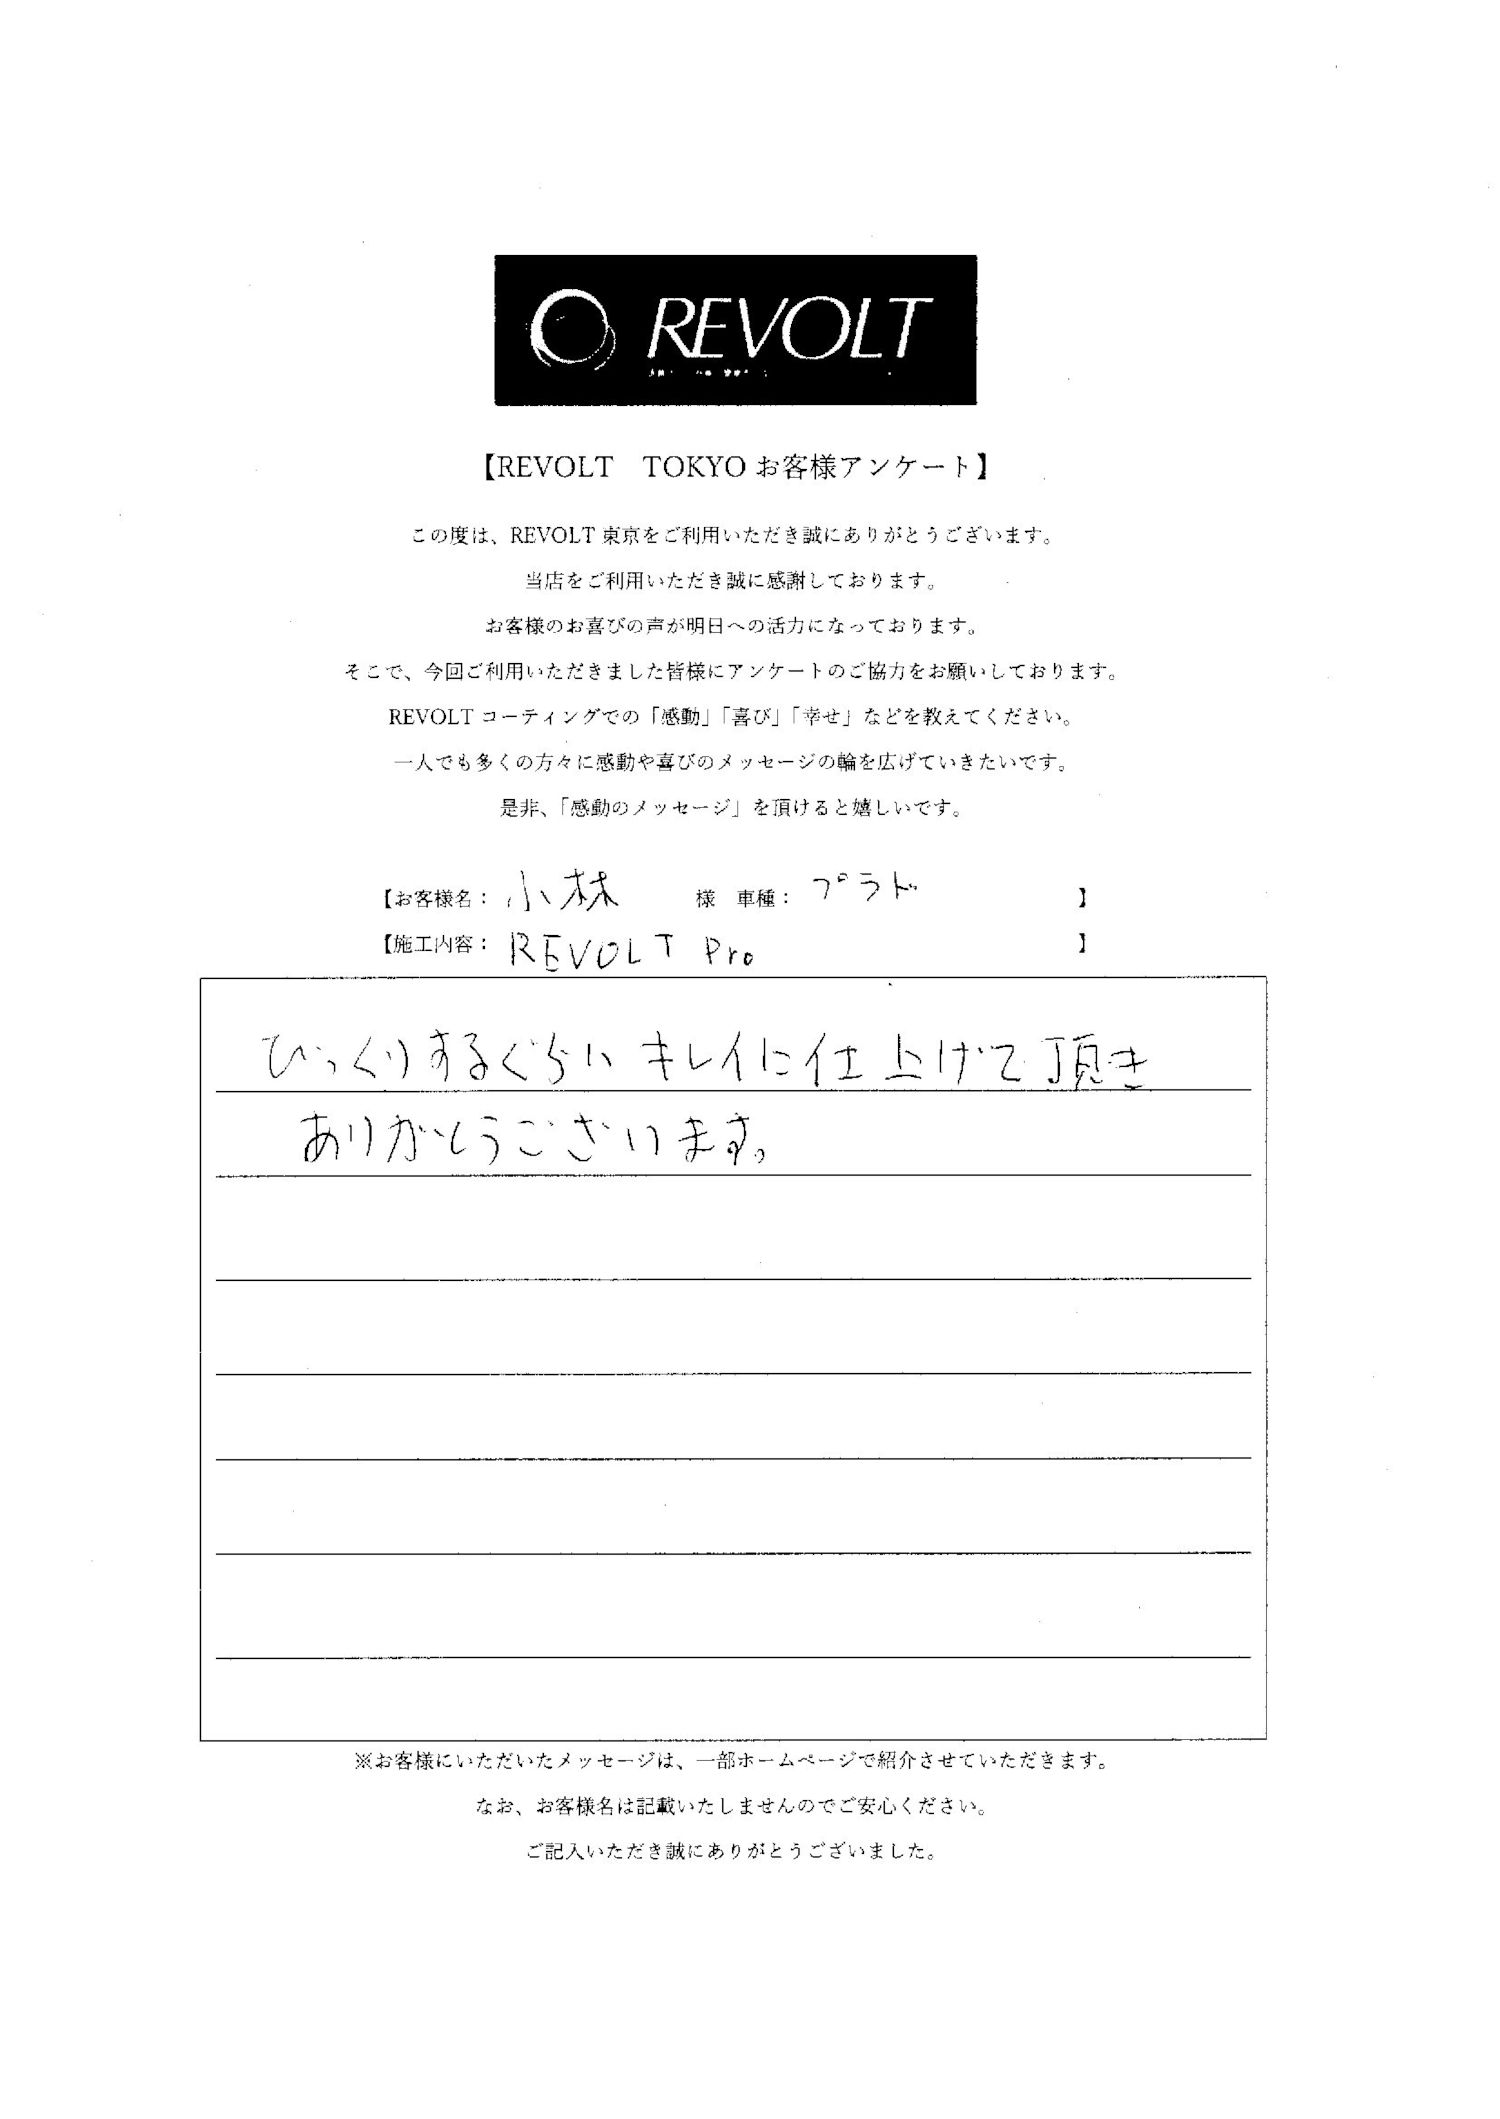 REVOLT
【REVOLT　TOKYO お客様アンケート】
この度は、REVOLT 東京をご利用いただき誠にありがとうございます。
当店をご利用いただき誠に感謝しております。
お客様のお喜びの声が明日への活力になっております。
そこで、今回ご利用いただきました皆様にアンケートのご協力をお願いしております。
REVOLT コーティングでの「感動」「喜び」「幸せ」などを教えてください。
一人でも多くの方々に感動や喜びのメッセージの輪を広げていきたいです。
是非、「感動のメッセージ」を頂けると嬉しいです。
【お客様名： 小林 様 車種： プラド 】
【施工内容： REVOLT Pro 】
びっくりするぐらい キレイに仕上げて頂き
ありがとうございます。
※お客様にいただいたメッセージは、一部ホームページで紹介させていただきます。
なお、お客様名は記載いたしませんのでご安心ください。
ご記入いただき誠にありがとうございました。